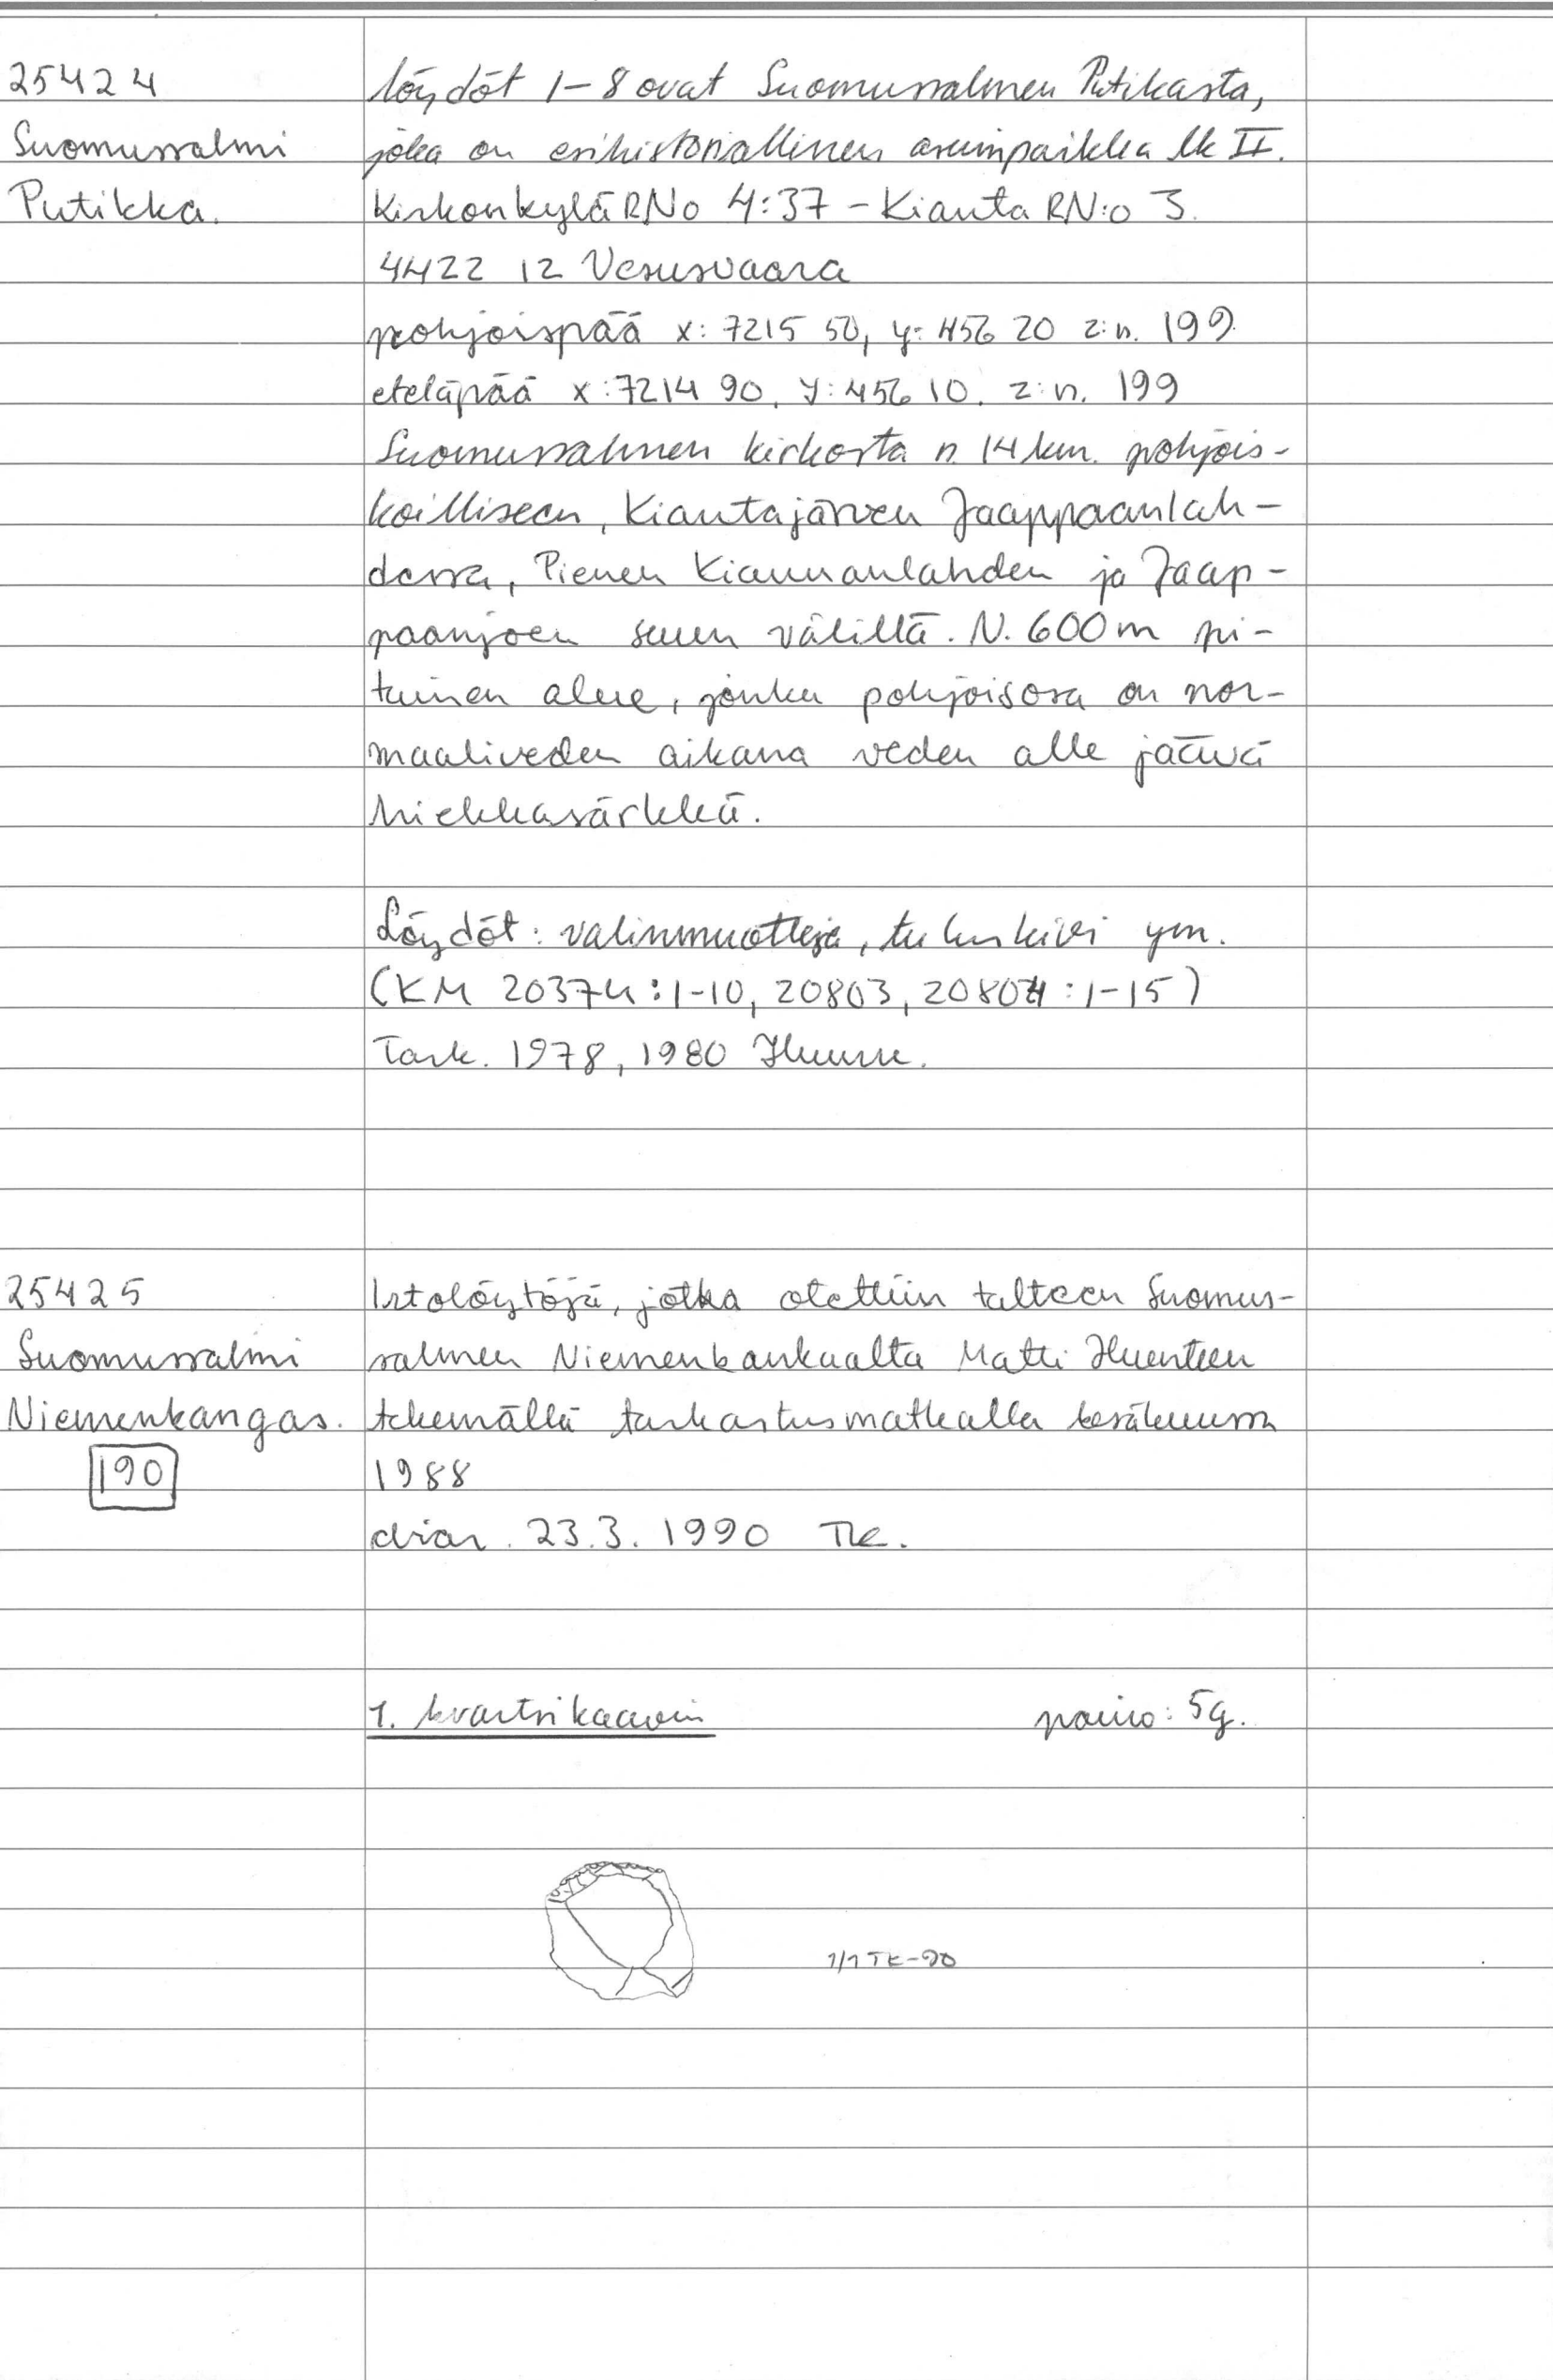 25424
Suomussalmi
Putikka.
löydöt 1-8 ovat Suomussalmen Putikasta,
joka on esihistoriallinen asuinpaikka lk II.
Kirkonkylä RNo 4:37 - Kianta RN:o 3.
4422 12 Vesusvaara
pohjoispää x: 7215 50, y: 456 20 z: n. 199.
eteläpää x: 7214 90, y: 456 10. z: n. 199
Suomussalmen kirkosta n. 14 km. pohjois-
koilliseen, Kiantajärven Jaappaanlah-
dessa, Pienen Kiannanlahden ja Jaap-
paanjoen suun välillä. N. 600 m pi-
tuinen alue, jonka pohjoisosa on nor-
maaliveden aikana veden alle jäävä
hiekkasärkkä.
Löydöt: valinmuotteja, tuluskivi ym.
(KM 20374:1-10, 20803, 20804:1-15)
Tark. 1978, 1980 Huurre.
25425
Suomussalmi
Niemenkangas.
190
Irtolöytöjä, jotka otettiin talteen Suomus-
salmen Niemenkankaalta Matti Huurteen
tekemällä tarkastusmatkalla kesäkuussa
1988
diar. 23.3. 1990 TK.
1. kvartsikaavin paino: 5g.
1/1 TK-90